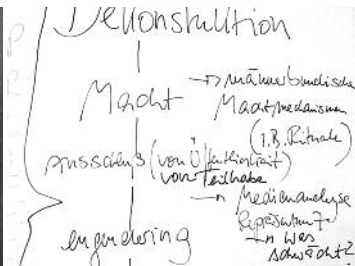 Dekonstruktion
Macht → männerbündische
Machtmechanismen
(z.B. Rituale)
Ausschluß (von Öffentlichkeit)
von Teilhabe
→ Medienanalyse
Repräsentanz?
→ was
schwächt?
engendering